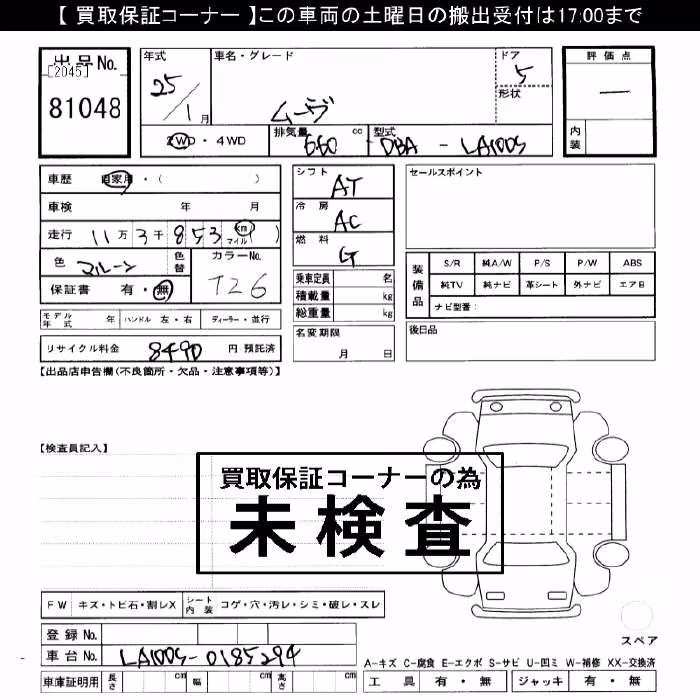 【 買取保証コーナー 】この車両の土曜日の搬出受付は17:00まで
出品No.
[2045]
81048
年式
25/1月
車名・グレード
ムーヴ
ドア
5
形状
評価点
―
内装
2WD・4WD
排気量 660 cc
型式 DBA - LA100S
車歴 自家用・( )
車検 年 月
走行 11万3千853 km マイル )
色 マルーン
色替
カラーNo.
T26
保証書 有・無
シフト
AT
冷房
AC
燃料
G
乗車定員 名
積載量 kg
総重量 kg
名変期限
月 日
セールスポイント
装備品
S/R 純A/W P/S P/W ABS
純TV 純ナビ 革シート 外ナビ エアB
ナビ型番:
後日品
モデル年式 年 ハンドル 左・右 ディーラー・並行
リサイクル料金 8490 円 預託済
【出品店申告欄(不良箇所・欠品・注意事項等)】
【検査員記入】
買取保証コーナーの為
未検査
FW キズ・トビ石・割レX シート内装 コゲ・穴・汚レ・シミ・破レ・スレ
スペア
登録No.
車台No. LA100S-0185294
車庫証明用 長さ cm 幅 cm 高さ cm
A-キズ C-腐食 E-エクボ S-サビ U-凹ミ W-補修 XX-交換済
工具 有・無 ジャッキ 有・無